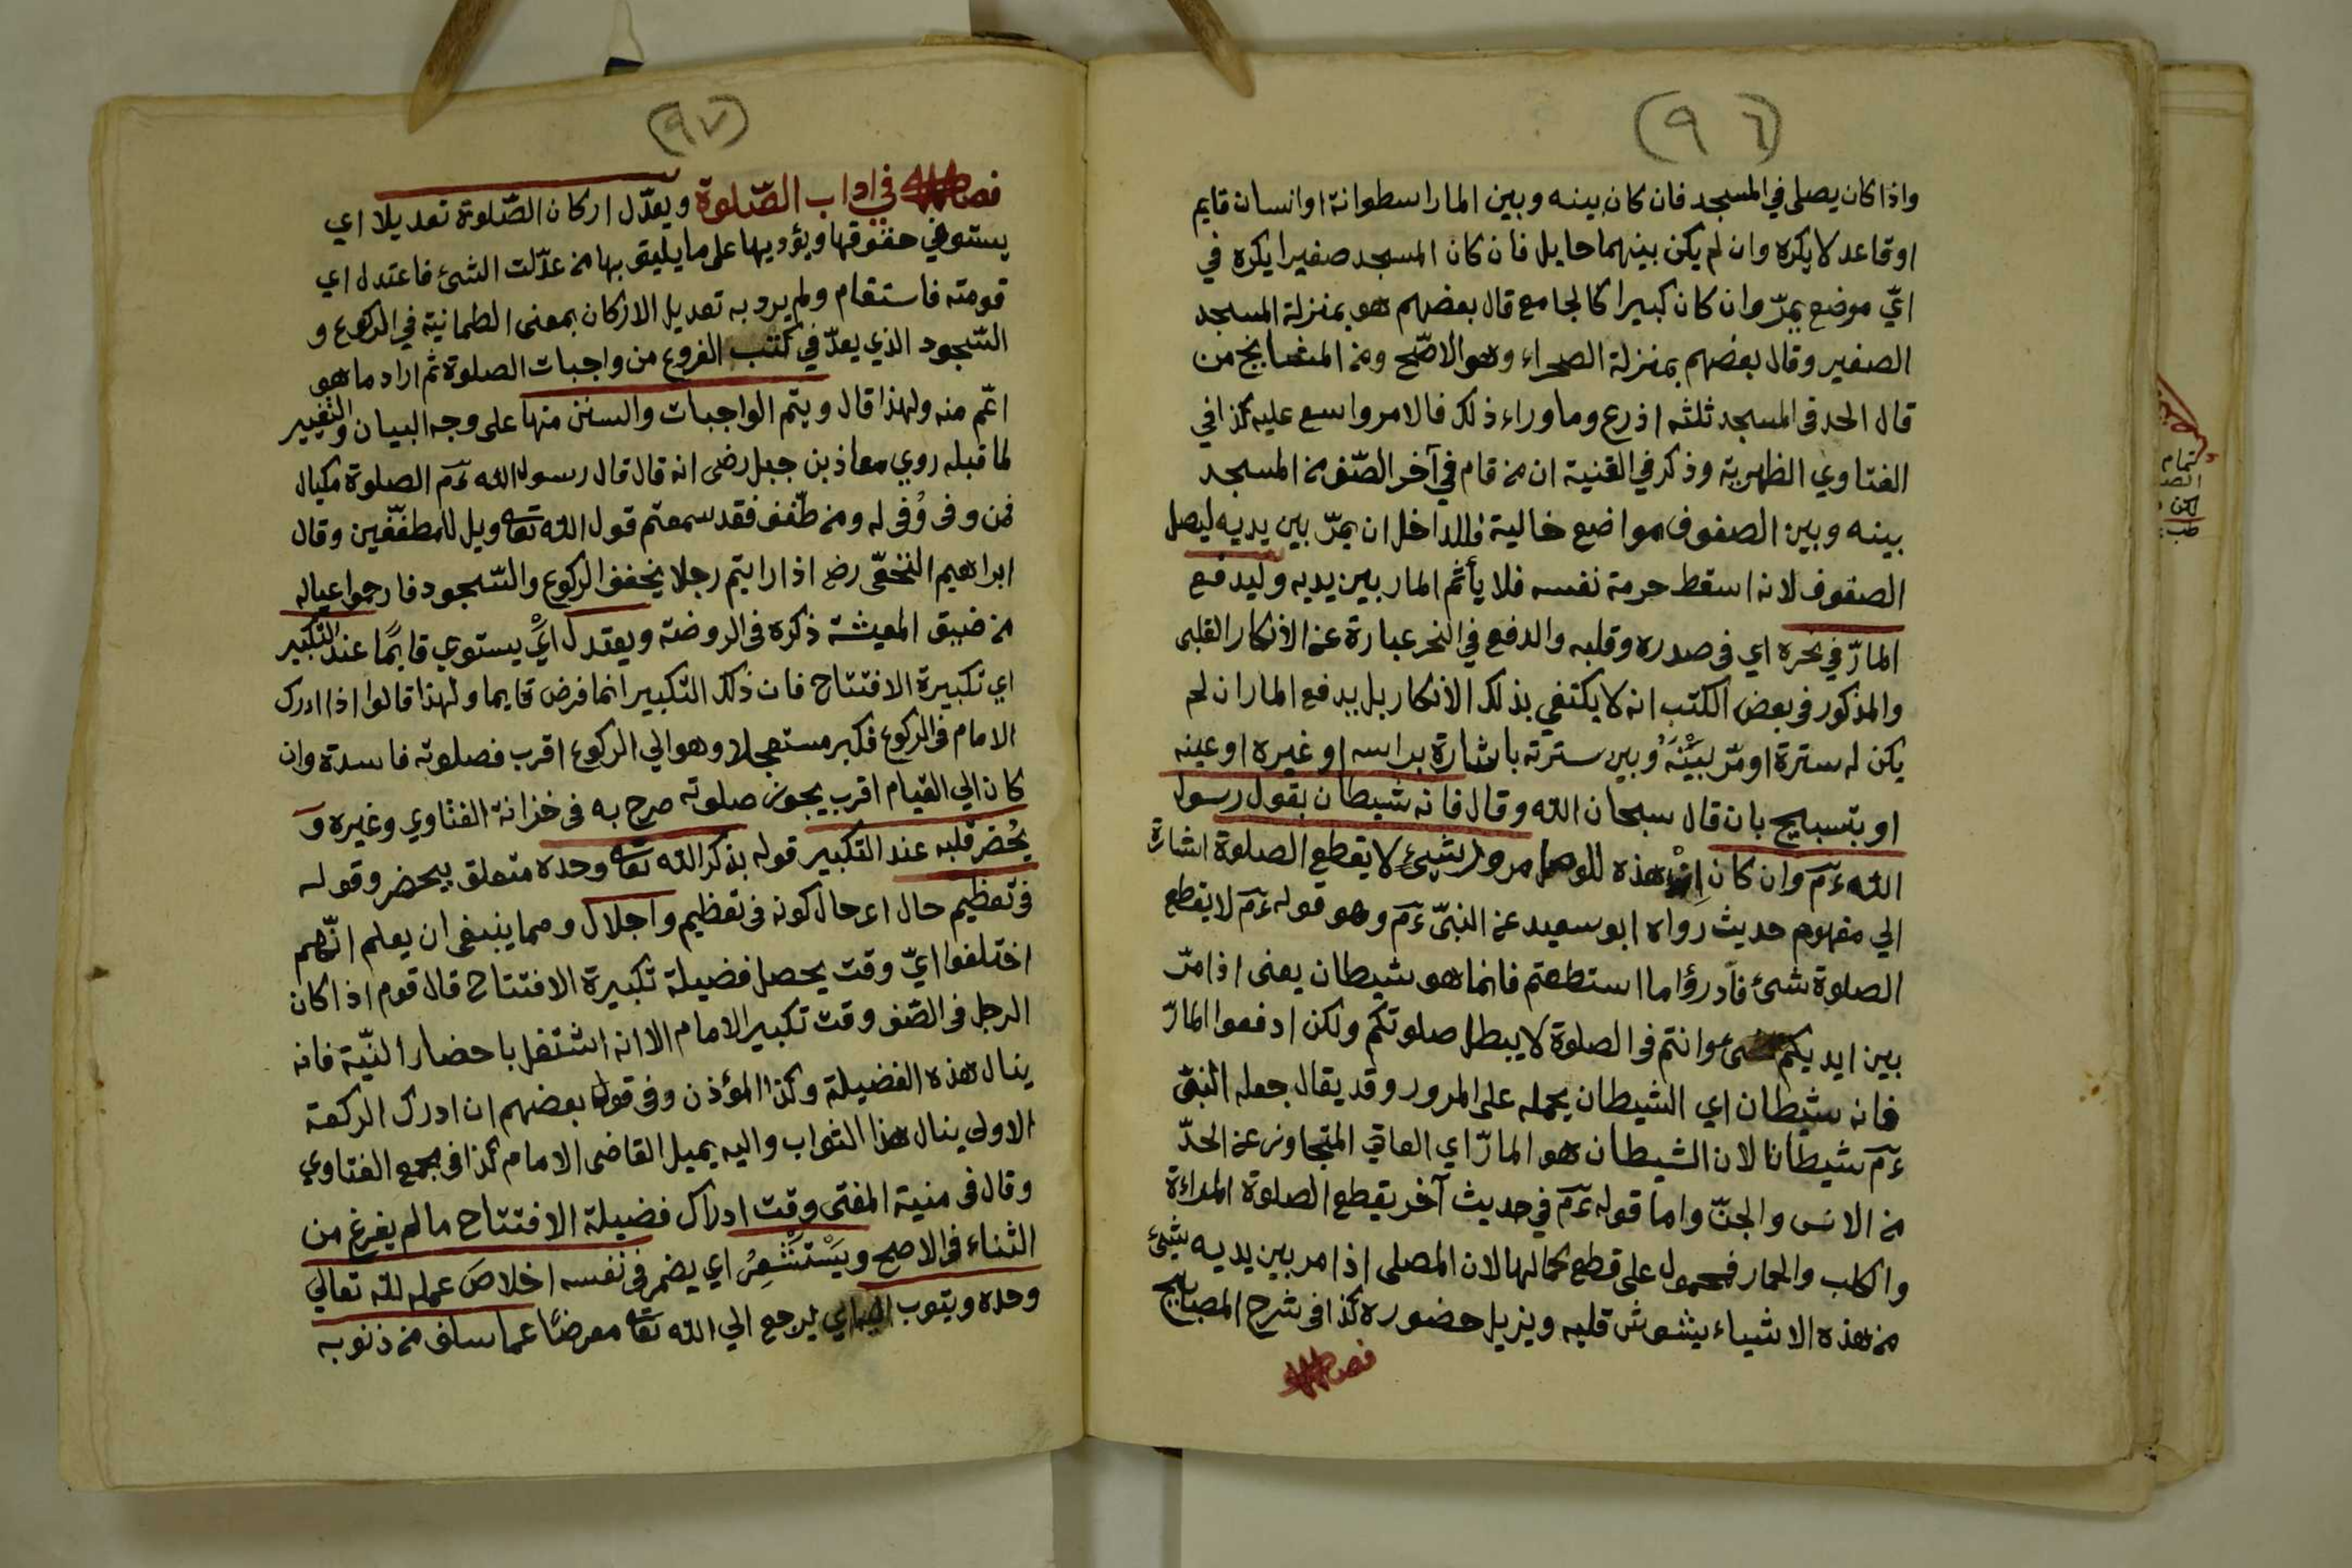 (٩٦)
واذا كان يصلى في المسجد فان كان بينه وبين المار اسطوانة او انسان قايم
او قاعد لا يكره وان لم يكن بينهما حايل فان كان المسجد صغيرا يكره في
ايّ موضع يمرّ وان كان كبيرا كالجامع قال بعضهم هو بمنزلة المسجد
الصغير وقال بعضهم بمنزلة الصحراء وهو الاصّح ومن المشايخ من
قال الحد فى المسجد ثلثه اذرع وما وراء ذلك فالامر واسع عليه كذا في
الفتاوي الظهرية وذكر في القنية ان من قام في آخر الصّف من المسجد
بينه وبين الصفوف مواضع خالية فللداخل ان يمرّ بين يديه ليصل
الصفوف لانه اسقط حرمة نفسه فلا يأثم المار بين يديه وليدفع
المارّ في نحره اي فى صدره وقلبه والدفع في النحر عبارة عن الانكار القلبى
والمذكور فى بعض الكتب انه لا يكتفي بذلك الانكار بل يدفع المار ان لم
يكن له سترة او مرّ بَيْنَهُ وبين سترته باشارة براسه او غيره او عينه
او بتسبيح بان قال سبحان الله وقال فانه شيطان بقول رسول
الله ءم وان كان هذه مرور شيئ لا يقطع الصلوة اشارة
الي مفهوم حديث رواه ابو سعيد عن النبىّ ءم وهو قوله ءم لا يقطع
الصلوة شئ فأدرؤا ما استطعتم فانما هو شيطان يعنى اذا مرّ
بين ايديكم شئ وانتم فى الصلوة لا يبطل صلوتكم ولكن ادفعوا المارّ
فانه شيطان اي الشيطان يحمله على المرور وقد يقال جعله النبى
ءم شيطانا لان الشيطان هو المارّ اي العاتي المتجاوز عن الحدّ
من الانس والجنّ واما قوله ءم في حديث آخر يقطع الصلوة المراءة
والكلب والحمار فمحمول على قطع كمالها لان المصلى اذا مر بين يديه شيئ
من هذه الاشياء يشوش قلبه ويزيل حضوره كذا فى شرح المصابيح
فصل
(٩٧)
فصل في اداب الصّلوة ويعدّل اركان الصّلوة تعديلا اي
يستوفي حقوقها ويؤديها على ما يليق بها من عدّلت الشئ فاعتدل اي
قومته فاستقام ولم يرد به تعديل الاركان بمعنى الطمانية في الركوع و
السّجود الذي يعدّ في كتب الفروع من واجبات الصلوة ثم اراد ما هو
اعّم منه ولهذا قال ويتم الواجبات والسنن منها على وجه البيان والتفسير
لما قبله روي معاذ بن جبل رضى انه قال قال رسول الله ءم الصلوة مكيال
فمن وفى وُفى له ومن طّفف فقد سمعتم قول الله تعا ويل للمطفّفين وقال
ابراهيم النخعّى رض اذا رايتم رجلا يخفف الركوع والسّجود فارحموا عياله
من ضيق المعيشة ذكره فى الروضة ويعتدل ايْ يستوي قايمًا عند التكبير
اي تكبيرة الافتتاح فان ذلك التكبير انما فرض قايما ولهذا قالوا اذا ادرك
الامام فى الركوع فكبر مستعجلا وهو الي الركوع اقرب فصلوته فاسدة وان
كان الي القيام اقرب يجوز صلوته صرح به فى خزانة الفتاوي وغيره و
يُحضر قلبه عند التكبير قوله بذكر الله تعا وحده متعلق بيحضر وقوله
فى تعظيم حال اى حال كونه فى تعظيم واجلال ومما ينبغى ان يعلم انّهم
اختلفوا ايّ وقت يحصل فضيلة تكبيرة الافتتاح قال قوم اذا كان
الرجل فى الصّف وقت تكبير الامام الا انه اشتغل باحضار النيّة فانه
ينال هذه الفضيلة وكذا المؤذن وفى قول بعضهم ان ادرك الركعة
الاولى ينال هذا الثواب واليه يميل القاضى الامام كذا فى مجمع الفتاوي
وقال فى منية المفتى وقت ادراك فضيلة الافتتاح ما لم يفرغ من
الثناء فى الاصح ويَسْتَشْعِرُ اي يضمر فى نفسه اخلاصَ عمله لله تعالي
وحده ويتوب اي يرجع الي الله تعا معرضًا عما سلف من ذنوبه